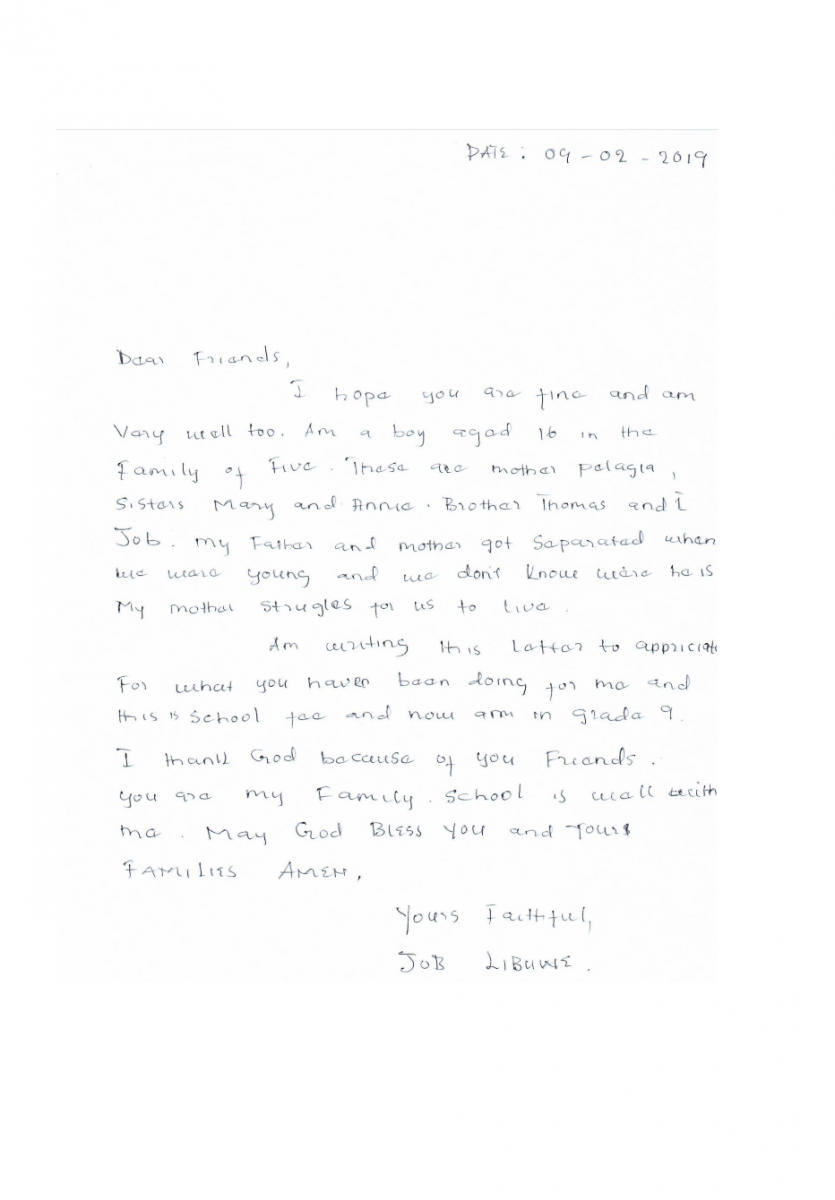 DATE: 09-02-2019
Dear Friends,
I hope you are fine and am
Very well too. Am a boy aged 16 in the
Family of Five. These are mother pelagia,
Sisters Mary and Annie. Brother Thomas and I
Job. my Father and mother got Separated when
we ware young and we don't Know were he is
My mother strugles for us to live.
Am writing this Letter to appriciate
For what you haver been doing for me and
this is School fee and now arm in grade 9.
I thank God because of you Friends.
you are my Family. School is well with
me. May God Bless You and Yours
FAMILIES AMEN,
Yours Faithful,
JOB LIBUWE.